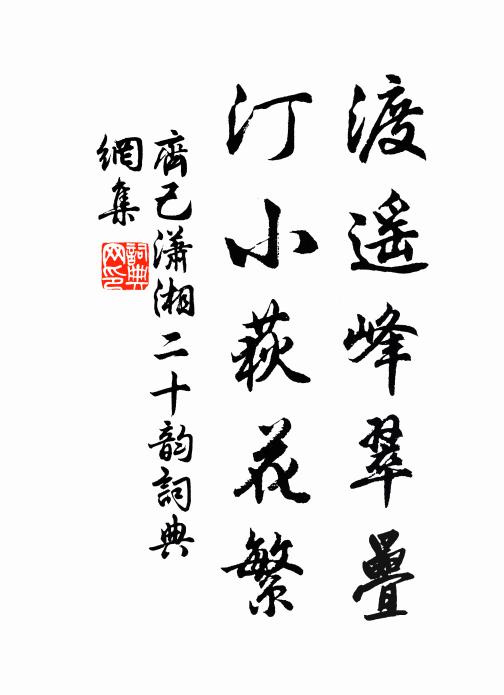 渡遥峰翠疊
汀小萩花繁
齊己瀟湘二十韵詞典
網集
詞典
网印